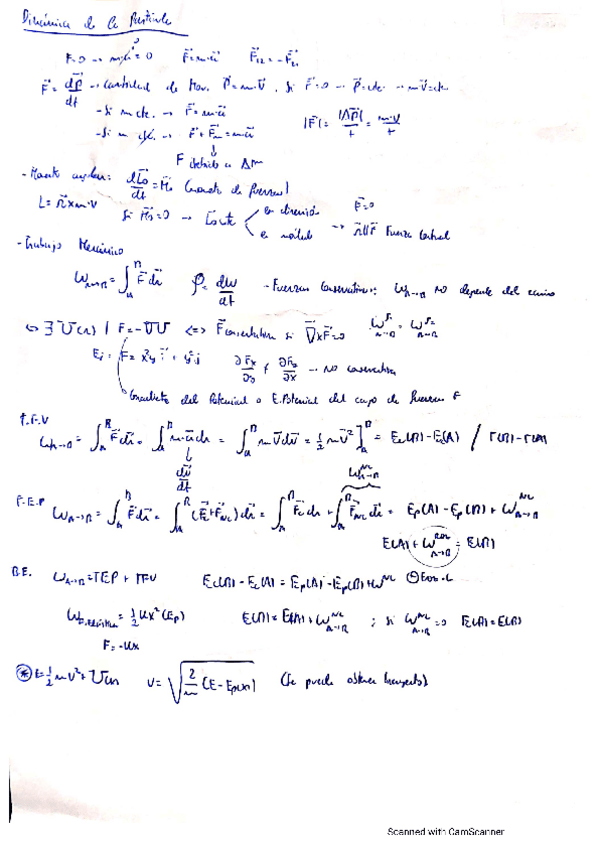 Dinámica de la Partícula
F=0 → m·a = 0    F=m·a    F₁₂=-F₂₁
F = dp/dt → cantidad de Mov. P=m·V. Si F=0 → P=cte. → mV=cte
- Si m cte. → F=m·a    |F|= |ΔP|/t = m·V/t
- Si m → F+Fm=m·a
F debido a Δm
- Momento angular: dLo/dt = Mo (momento de fuerzas)
L= r x m·v    Si Mo=0 → Lo cte < en dirección    F=0
en módulo → r||F Fuerza central
- Trabajo Mecánico
W A→B = ∫ F dr    P= dW/dt    - Fuerzas conservativas: W A→B no depende del camino
⇔ ∃ U(r) / F=-∇U ⇔ F conservativa si ∇xF=0    W A→B = W A→B
Ej: F= x²y i + y² j    ∂Fx/∂y ≠ ∂Fy/∂x → NO conservativa
Gradiente del Potencial o E.Potencial del campo de fuerzas F
T.F.V
W A→B = ∫ F dr = ∫ m·a dr = ∫ m V dv = 1/2 mV² ] = Ec(B) - Ec(A) / T(B) - T(A)
dv/dt
T.E.P W A→B = ∫ F dr = ∫ (Fc+FNC) dr = ∫ Fc dr + ∫ FNC dr = Ep(A) - Ep(B) + W NC A→B
E(A) + W A→B = E(B)
B.E. W A→B = TEP + TFV    Ec(B) - Ec(A) = Ep(A) - Ep(B) + W NC
= 1/2 Kx² (Ep)    E(B) = E(A) + W NC A→B ; si W NC A→B = 0 E(A) = E(B)
F=-Kx
* E= 1/2 mV² + U(x)    V= √(2/m (E - Ep(x))) (se puede obtener trayecto)
Scanned with CamScanner